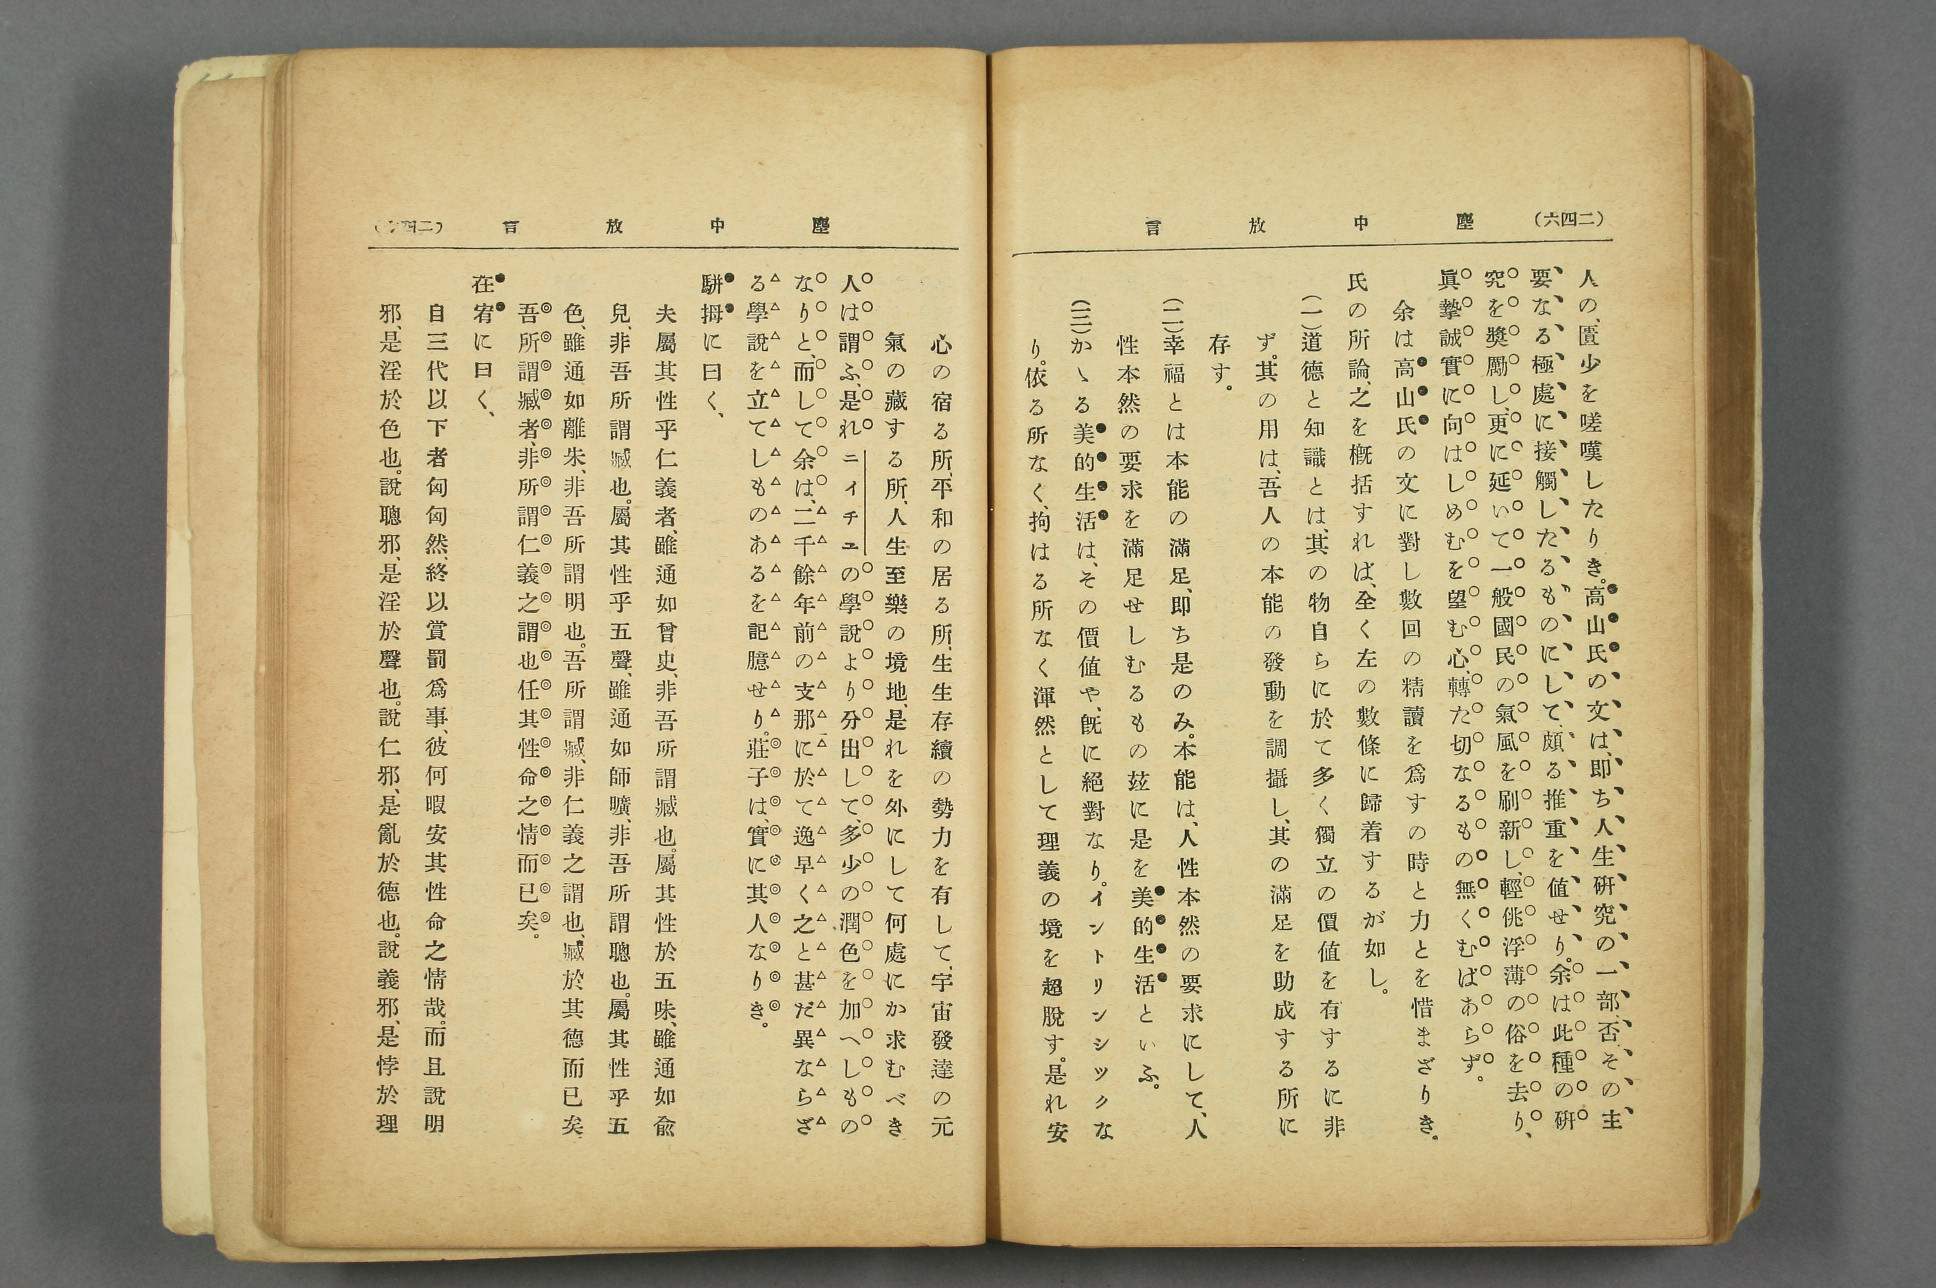 (二四六)
塵中放言
人の、匱少を嗟嘆したりき。高山氏の文は、即ち人生研究の一部、否、その主
要なる極處に接觸したるものにして、頗る推重を値せり。余は此種の研
究を奬勵し、更に延いて一般國民の氣風を刷新し、輕佻浮薄の俗を去り、
眞摯誠實に向はしめむを望む心、轉た切なるもの無くむばあらず。
余は高山氏の文に對し數回の精讀を爲すの時と力とを惜まざりき。
氏の所論、之を概括すれば、全く左の數條に歸着するが如し。
(一)道德と知識とは、其の物自らに於て多く獨立の價値を有するに非
ず。其の用は、吾人の本能の發動を調攝し、其の滿足を助成する所に
存す。
(二)幸福とは本能の滿足、即ち是のみ。本能は、人性本然の要求にして、人
性本然の要求を滿足せしむるもの玆に是を美的生活といふ。
(三)かゝる美的生活は、その價値や、既に絕對なり。イントリンシックな
り。依る所なく、拘はる所なく渾然として理義の境を超脫す。是れ安
塵中放言
心の宿る所、平和の居る所、生生存續の勢力を有して、宇宙發達の元
氣の藏する所、人生至樂の境地、是れを外にして何處にか求むべき
人は謂ふ、是れニイチエの學說より分出して、多少の潤色を加へしもの
なりと、而して余は、二千餘年前の支那に於て逸早く之と甚だ異ならざ
る學說を立てしものあるを記臆せり。莊子は、實に其人なりき。
駢拇に曰く、
夫屬其性乎仁義者、雖通如曾史、非吾所謂臧也。屬其性於五味、雖通如兪
兒、非吾所謂臧也。屬其性乎五聲、雖通如師曠、非吾所謂聰也。屬其性乎五
色、雖通如離朱、非吾所謂明也。吾所謂臧、非仁義之謂也、臧於其德而已矣、
吾所謂臧者、非所謂仁義之謂也任其性命之情而已矣。
在宥に曰く、
自三代以下者匈匈然、終以賞罰爲事、彼何暇安其性命之情哉。而且說明
邪、是淫於色也。說聰邪、是淫於聲也。說仁邪、是亂於德也。說義邪、是悖於理